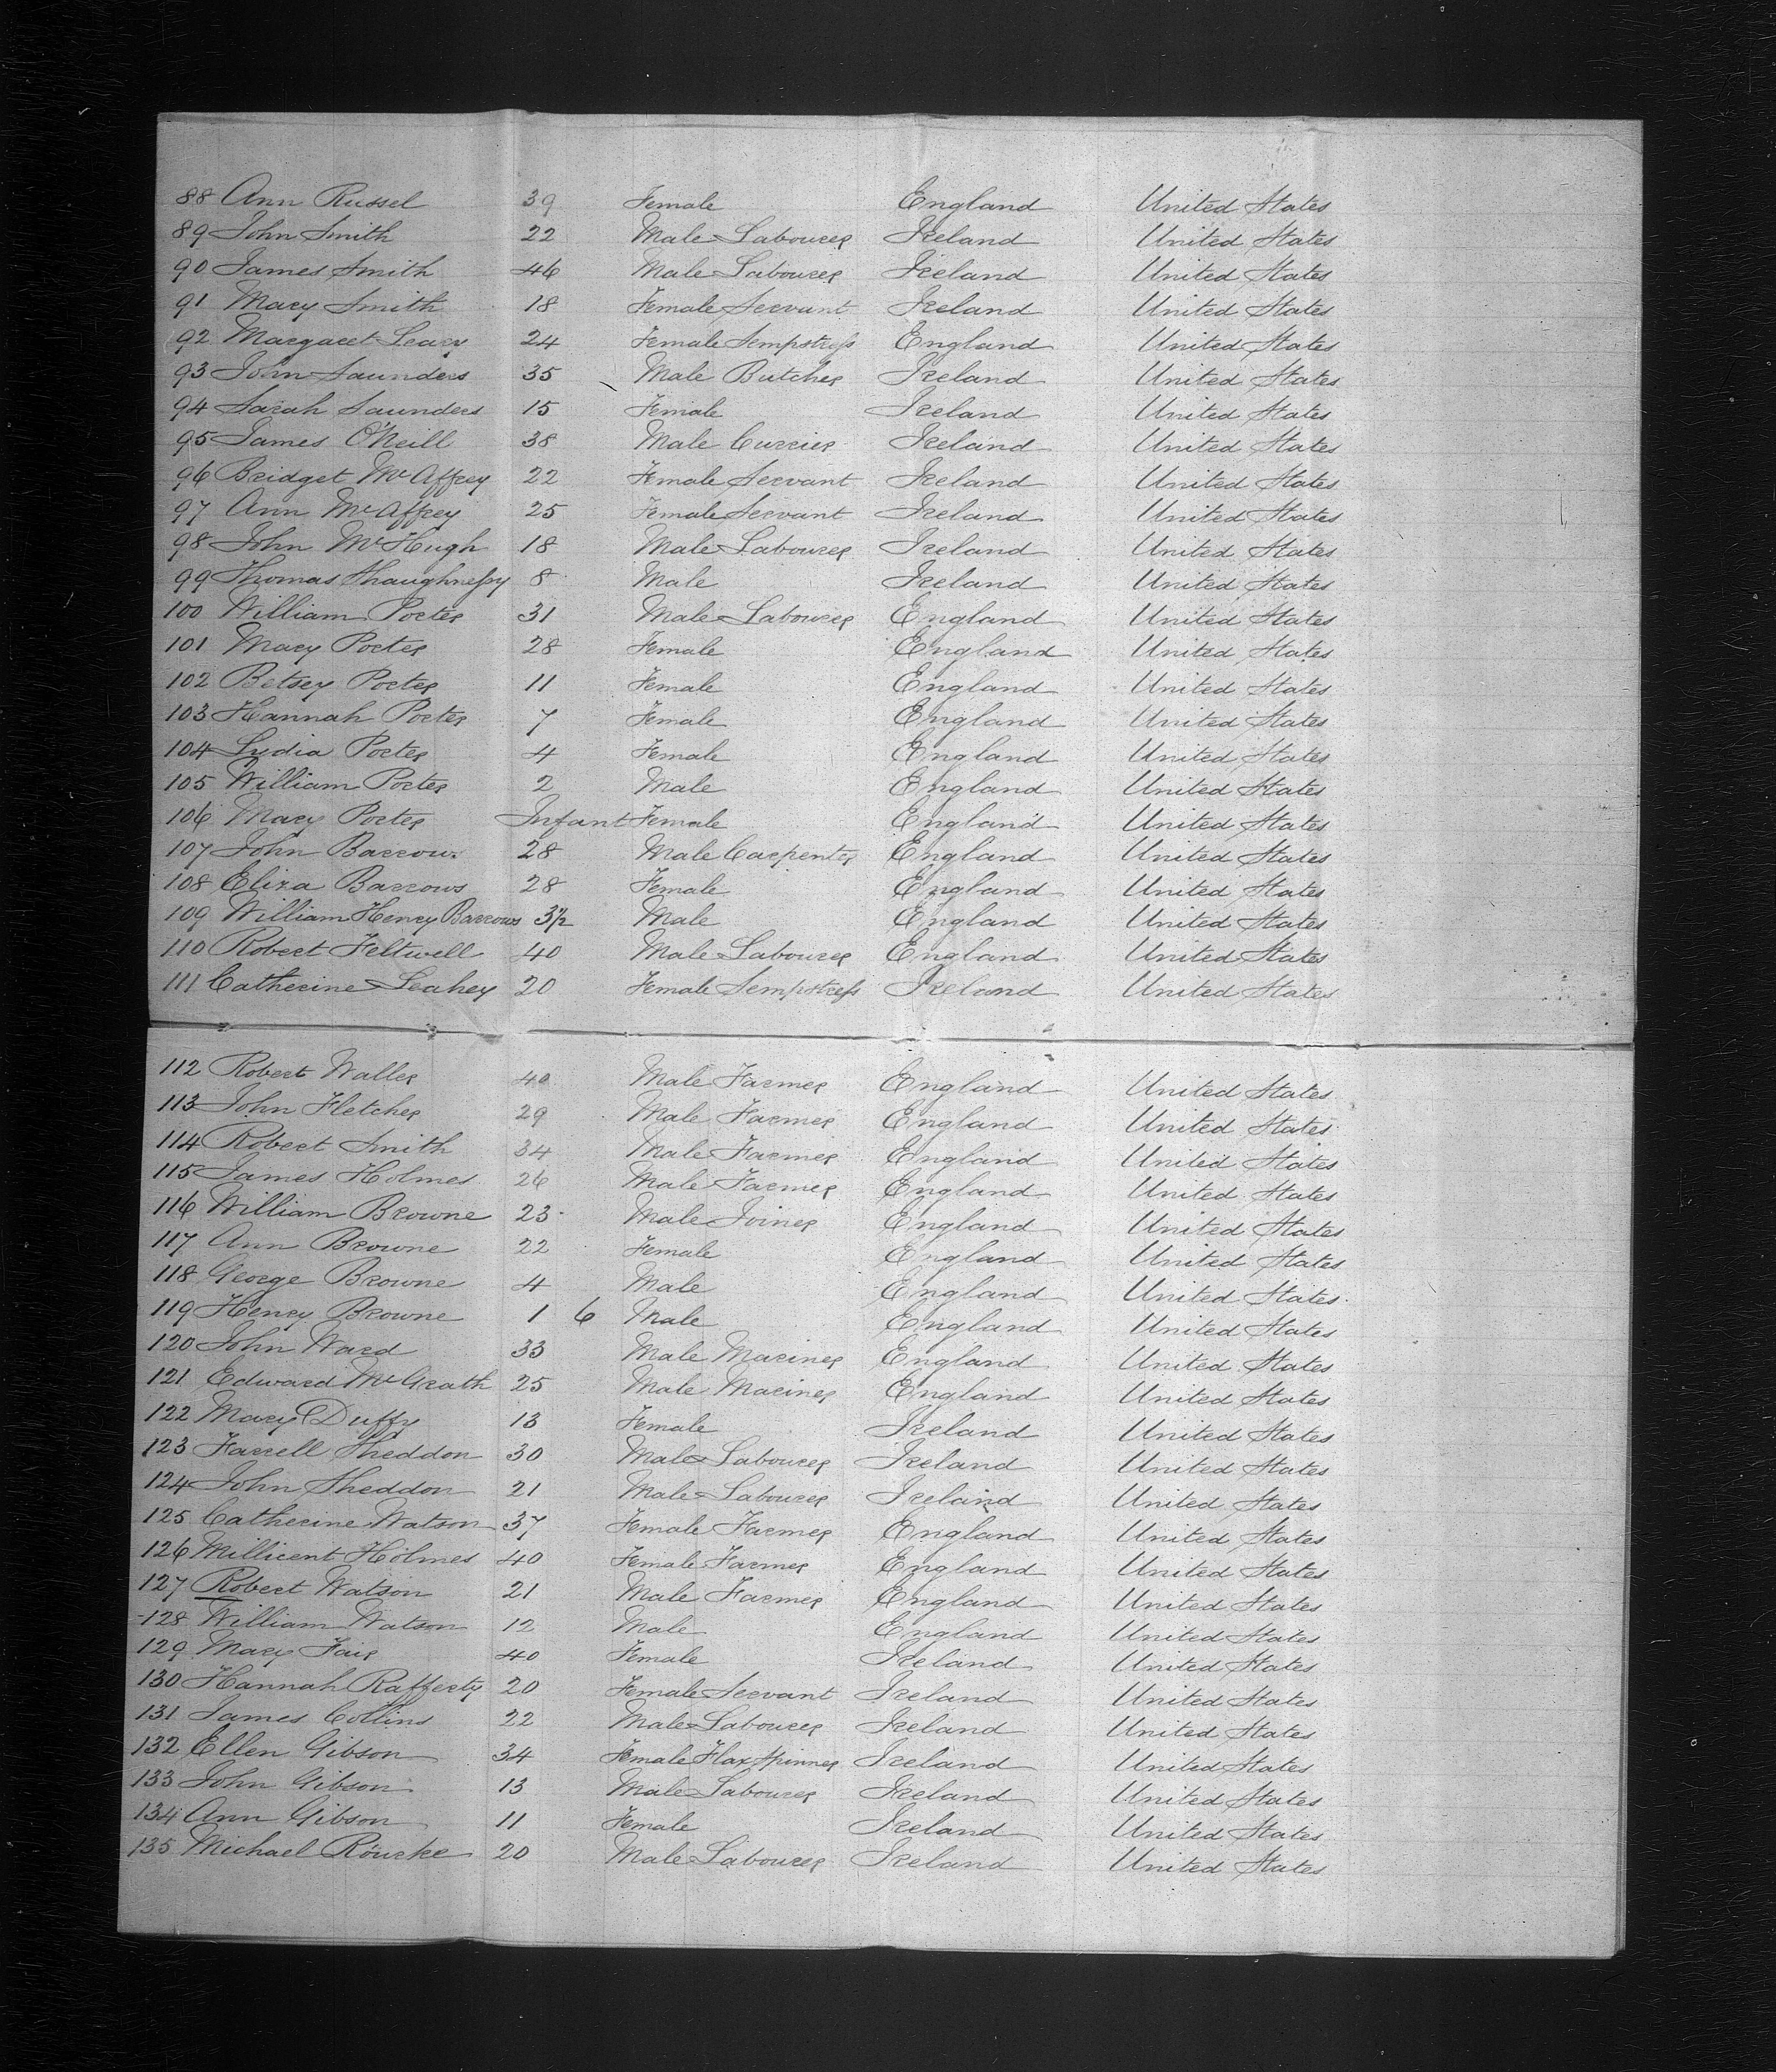 88 Ann Russel 39 Female England United States
89 John Smith 22 Male Labourer Ireland United States
90 James Smith 46 Male Labourer Ireland United States
91 Mary Smith 18 Female Servant Ireland United States
92 Margaret Leary 24 Female Sempstress England United States
93 John Saunders 35 Male Butcher Ireland United States
94 Sarah Saunders 15 Female Ireland United States
95 James O'Neill 38 Male Currier Ireland United States
96 Bridget McAffrey 22 Female Servant Ireland United States
97 Ann McAffrey 25 Female Servant Ireland United States
98 John McHugh 18 Male Labourer Ireland United States
99 Thomas Shaughnessy 8 Male Ireland United States
100 William Porter 31 Male Labourer England United States
101 Mary Porter 28 Female England United States
102 Betsey Porter 11 Female England United States
103 Hannah Porter 7 Female England United States
104 Lydia Porter 4 Female England United States
105 William Porter 2 Male England United States
106 Mary Porter Infant Female England United States
107 John Barrow. 28 Male Carpenter England United States
108 Eliza Barrows 28 Female England United States
109 William Henry Barrows 3½ Male England United States
110 Robert Feltwell 40 Male Labourer England United States
111 Catherine Leahey 20 Female Sempstress Ireland United States
112 Robert Waller 40 Male Farmer England United States
113 John Fletcher 29 Male Farmer England United States
114 Robert Smith 34 Male Farmer England United States
115 James Holmes 26 Male Farmer England United States
116 William Browne 23 Male Joiner England United States
117 Ann Browne 22 Female England United States
118 George Browne 4 Male England United States
119 Henry Browne 1 6 Male England United States
120 John Ward 33 Male Mariner England United States
121 Edward McGrath 25 Male Mariner England United States
122 Mary Duffy 13 Female Ireland United States
123 Farrell Sheddon 30 Male Labourer Ireland United States
124 John Sheddon 21 Male Labourer Ireland United States
125 Catherine Watson 37 Female Farmer England United States
126 Millicent Holmes 40 Female Farmer England United States
127 Robert Watson 21 Male Farmer England United States
128 William Watson 12 Male England United States
129 Mary Fair 40 Female Ireland United States
130 Hannah Rafferty 20 Female Servant Ireland United States
131 James Collins 22 Male Labourer Ireland United States
132 Ellen Gibson 34 Female Flax Spinner Ireland United States
133 John Gibson 13 Male Labourer Ireland United States
134 Ann Gibson 11 Female Ireland United States
135 Michael Rourke 20 Male Labourer Ireland United States